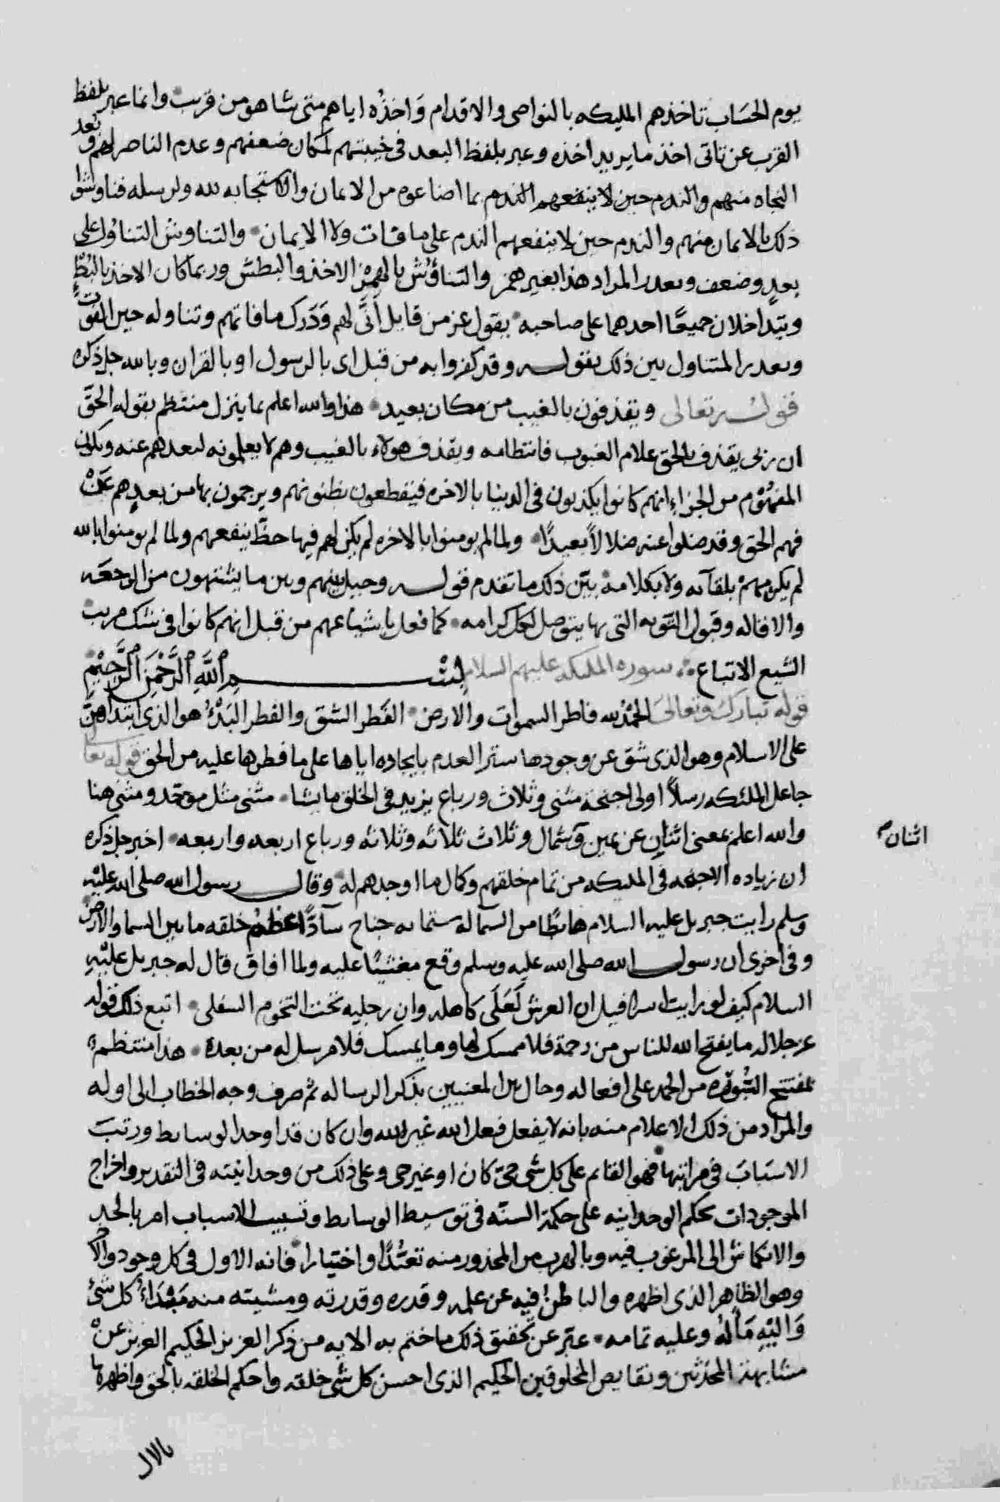 يوم الحساب تاخذهم المليكه بالنواصى والاقدام وَاخذُه اياهم متى شا هو من قريب وانما عبر بلفظ
القرب عن تاتى اخذ ما يريد اخذه وعبر بلفظ البعد فى خيبتهم لمكان ضعفهم وعدم الناصر لهم وبُعد
النجاه منهم والندم حين لا ينفعهم الندم بما اضاعوه من الايمان والاستجابه لله ولرسله فتناوشوا
ذلك بالايمان منهم والندم حين لا ينفعهم الندم على ما فات ولا الايمان والتناوش التناوُل على
بعدٍ وضعف وبعد المراد هذا بغير همز والتناؤش بالهمز الاخذ والبطش وربما كان الاخذ بالبُطءِ
ويتداخلان جميعًا احدهما على صاحبه يقول عز من قابل أنَّى لهم وَدَرك ما فاتهم وتناوله حين الفَوْت
وبعد المتناول بين ذلك بقوله وقد كفروا به من قبل اى بالرسول او بالقران وبالله جل ذكره
قوله تعالى ويقذفون بالغيب من مكان بعيد هذا والله اعلم بما ينزل منتظم بقوله الحق
ان ربى يقذف بالحق علام الغيوب فانتظامه ويقذف هولاء بالغيب وهم لا يعلمونه لبعدهم عنه ويكون
المفهوم من الجزاء انهم كانوا يكذبون فى الدنيا بالاخره فيقطعون بظنونهم ويرجمون بها من بعدهم عَنْ
فهم الحق وقد ضلوا عنه ضلالاً بعيدًا ولما لم يومنوا بالاخره لم يكن لهم فيها حظٌ ينفعهم ولما لم يومنوا بالله
لم يكرمهم بلقآئه ولا بكلامه بيّن ذلك ما تقدم قوله وحيل بينهم وبين ما يشتهون من الرجعَه
والاقاله وقبول التوبه التى بها يتوصل لكل كرامه كما فعل باشياعهم من قبل انهم كانوا فى شك مريب
الشيع الاتباع سوره المليكه عليهم السلام بِسْمِ اللَّهِ الرَّحْمَنِ الرَّحِيْمِ
قوله تبارك وتعالى الحمد لله فاطر السموات والارض الفَطر الشق والفطر البَدْءُ هو الذى ابتداهنَّ
على الاسلام وهو الذى شق عن وجودها ستر العدم بايجاده اياها على ما فطرها عليه من الحق قوله تعالى
جاعل المليكه رسلاً اولى اجنحة مثنى وثلاث ورباع يزيد فى الخلق ما يشا مثنى مثل موحد ومثنى هنا
والله اعلم بمعنى اثنان عن يمين وَشمال وثلاث ثلاثه وثلاثه ورباع اربعه واربعه اخبر جل ذكره
اثنان صح
ان زياده الاجنحه فى المليكه من تمام خلقهم وكمال ما اوجدهم له وقال رسول الله صلى الله عليه
وسلم رايت جبريل عليه السلام هابطًا من السمآ له ستمايه جناح سآدًّا عظمُ خلقه ما بين السما والارض
وفى اخرى ان رسول الله صلى الله عليه وسلم وقع مغشيًا عليه ولما افاق قال له جبريل عليْهِ
السلام كيف لو رايت اسرافيل ان العرش لَعَلَى كاهله وان رجليه تحت التخوم السفلى اتبع ذلك قوله
عز جلاله ما يفتح الله للناس من رحمة فلا ممسك لها وما يمسك فلا مرسل له من بعده هذا منتظم
بمفتتح السُّورَه من الحمد على افعاله وحال المغيبين بذكر الرساله ثم صرف وجه الخطاب الى اوله
والمراد من ذلك الاعلام منه بانه لا يفعل فعل الله غير الله وان كان قد اوجد الوسايط ورتبَ
الاسبابَ فى مراتبها فهو القايم على كل شى حىّ كان او غير حى وعلى ذلك من وحدانيته فى التقدير واخراج
الموجودات بحكم الوحدانيه على حكمة السنّه فى توسيط الوسايط وتسبيب الاسباب امر بالجد
والانكماش الى المرغوب فيه وبالهرب من المحذور منه تعبُّدًا واختيارا فانه الاول فى كل وجود والاخر
وهو الظاهر الذى اظهره والباطن فيه عن علمه وقدره وقدرته ومشيته منه مَبْدَاءُ كل شئ
وَاليْهِ مَآلُهُ وعليه تمامه عبّر عن تحقيق ذلك ما ختم به الايه من ذكر العزيز الحكيم العزيز عن
مشابهة المحدَثين ونقايص المخلوقين الحكيم الذى احسن كل شى خلقه واحكم الخلقه بالحق واظهرها
بالال